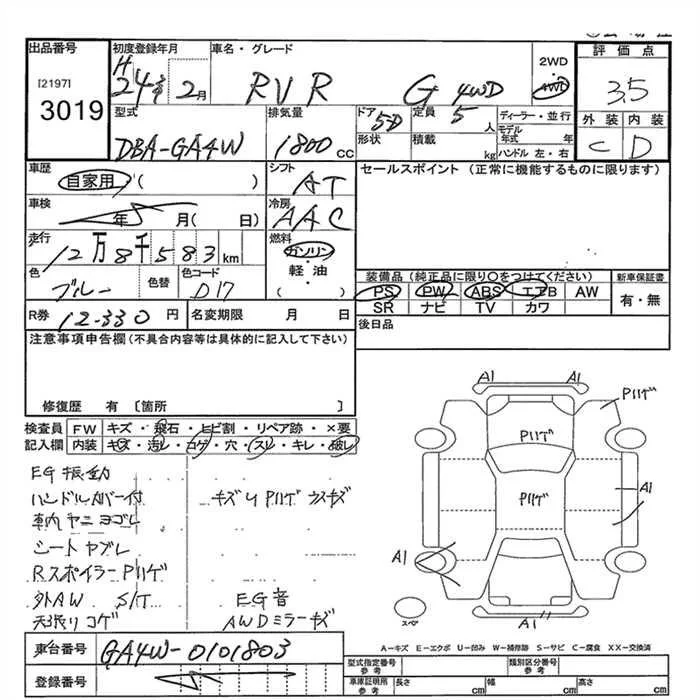 出品番号
[2197]
3019
初度登録年月
H24年 2月
車名・グレード
RVR G 4WD
2WD
・
4WD
評価点
3.5
外装 内装
C D
型式
DBA-GA4W
排気量
1800 CC
ドア 5D
形状
定員 5 人
積載 kg
ディーラー・並行
モデル年式 年
ハンドル 左・右
車歴
自家用 ( )
シフト
AT
セールスポイント (正常に機能するものに限ります)
車検
年 月( 日)
冷房
AAC
走行
12万8千583km
燃料
ガソリン
軽・油
( )
色
ブルー
色替
色コード
D17
装備品(純正品に限り○をつけてください)
PS PW ABS エアB AW
SR ナビ TV カワ
新車保証書
有・無
R券 12-330 円
名変期限 月 日
後日品
注意事項申告欄(不具合内容等は具体的に記入して下さい)
修復歴 有 〔箇所 〕
検査員記入欄
FW キズ・飛石・ヒビ割・リペア跡・×要
内装 キズ・汚レ・コゲ・穴・スレ・キレ・破レ
EG振動
ハンドルカバー付
キズ
車内ヤニヨゴレ
シートヤブレ
Rスポイラー Pハゲ
外AW S/T
EG音
天張りコゲ
AWDミラーキズ
A1 A1
Pハゲ
Pハゲ
Pハゲ
A1
A1
A1
スペア
A-キズ E-エクボ U-凹み W-補修跡 S-サビ C-腐食 XX-交換済
車台番号
GA4W-0101803
登録番号
型式指定番号
参考
類別区分番号
参考
車庫証明用
参考
長さ cm 幅 cm 高さ cm